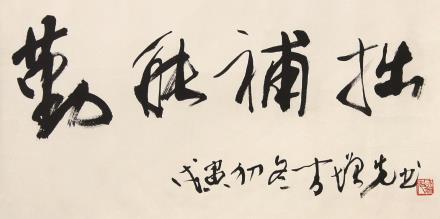 勤能補拙
戊寅初冬李增先书